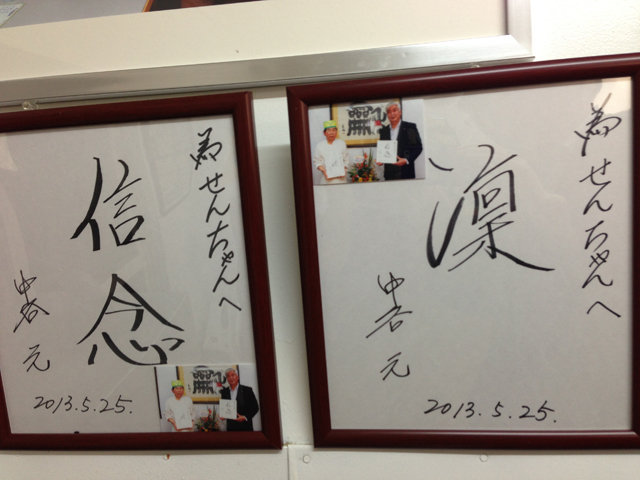 為せんちゃんへ
信念
中谷元
2013.5.25.
為せんちゃんへ
凛
中谷元
2013.5.25.